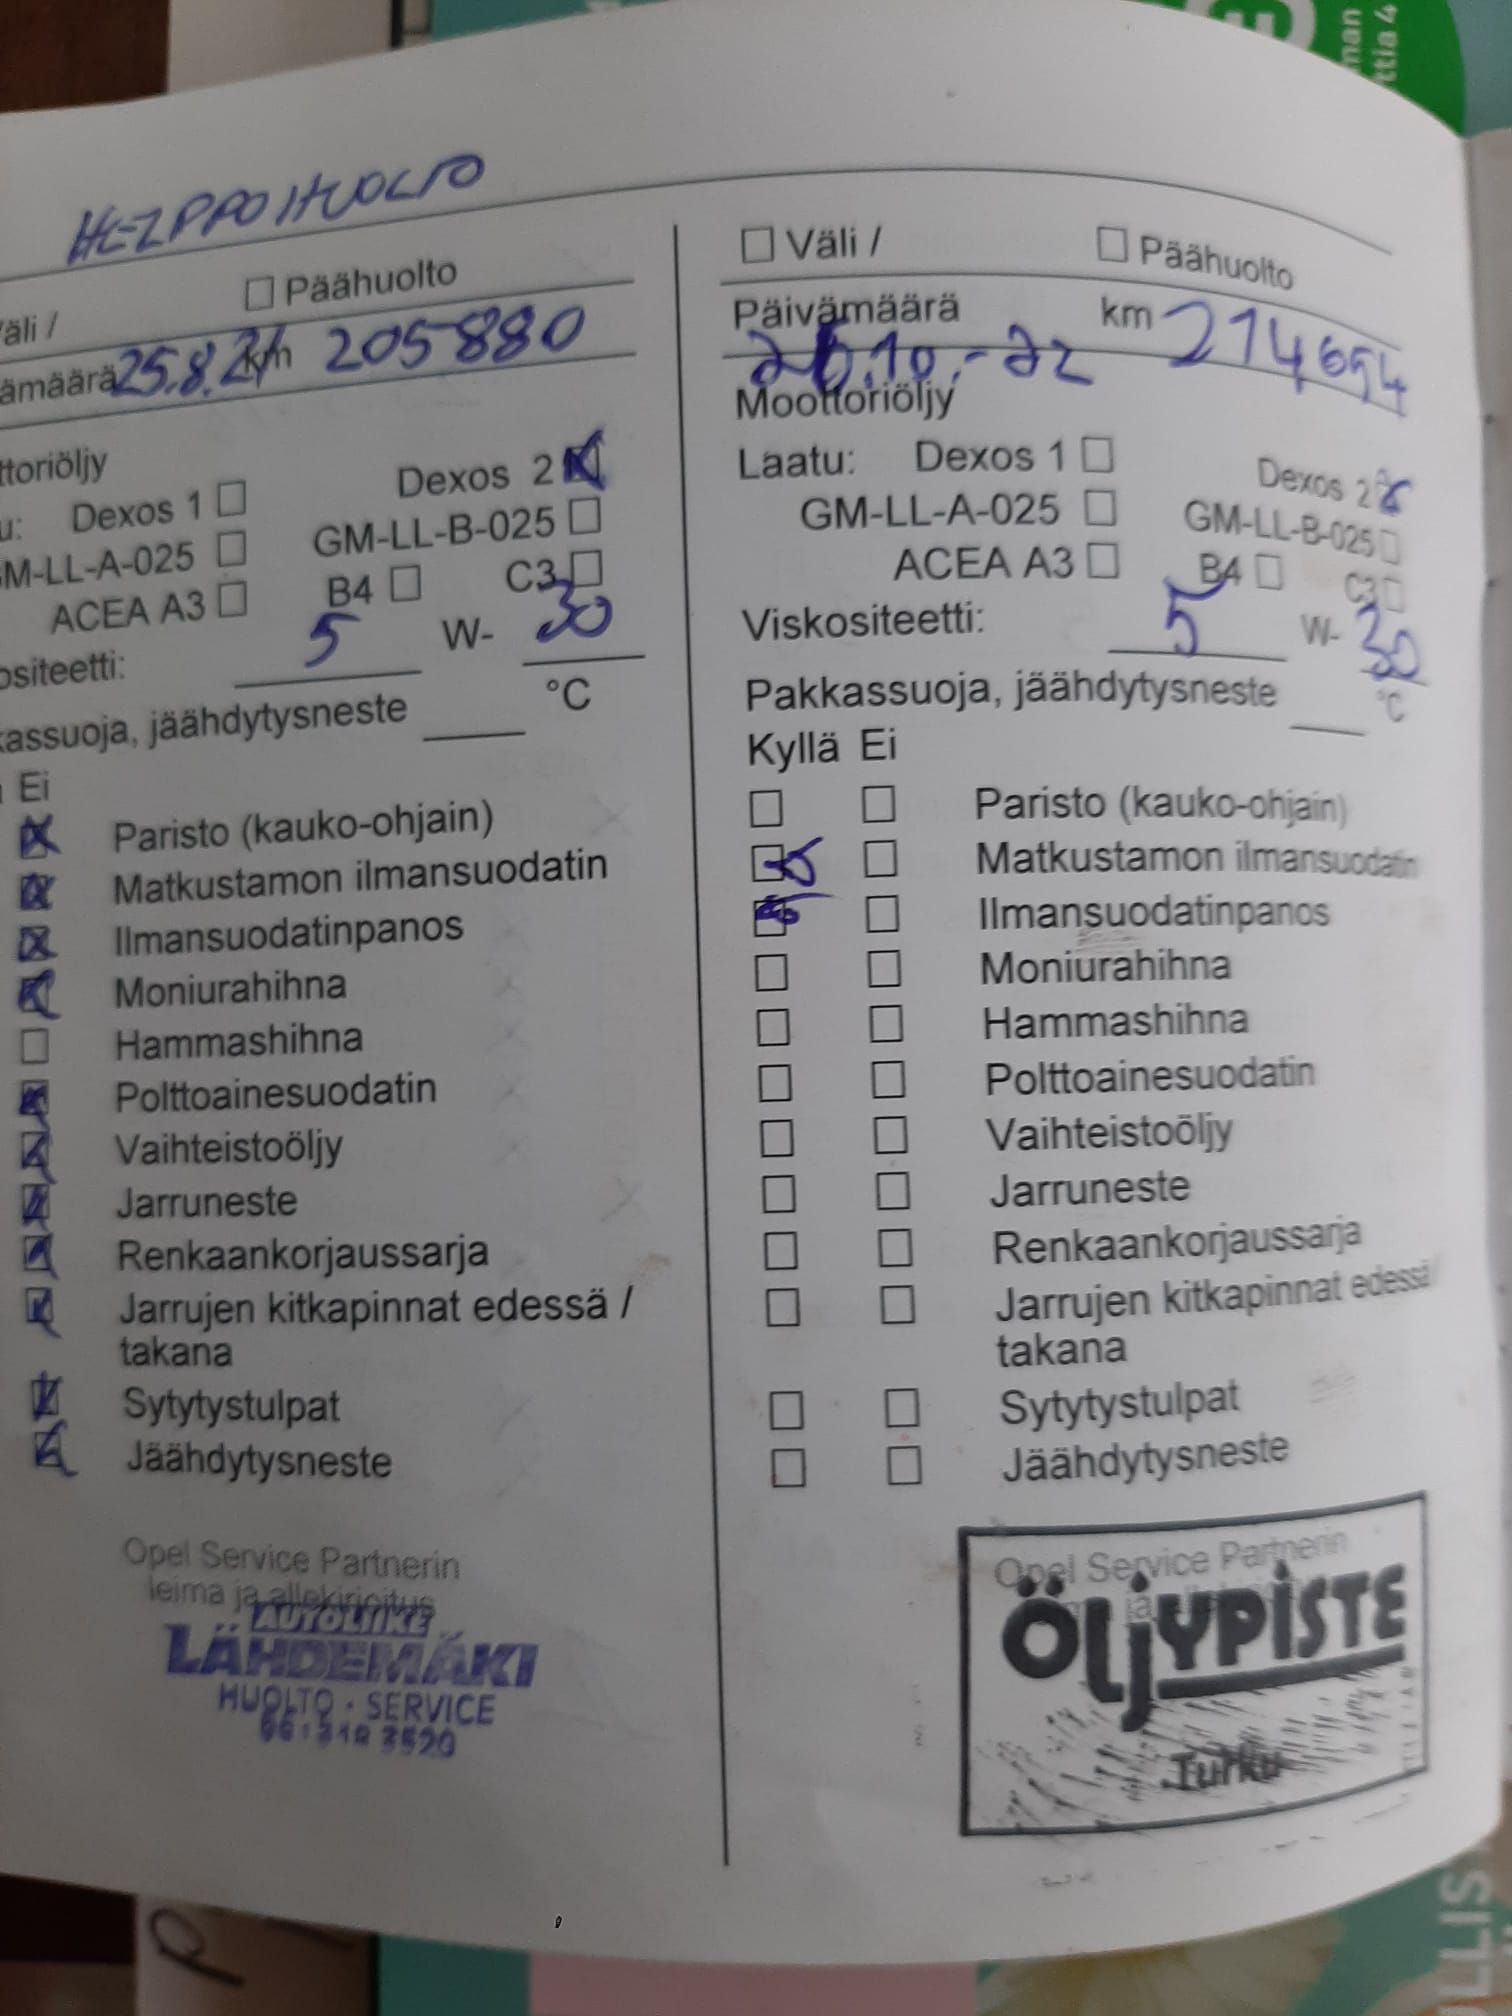 HELPPOHUOLTO
äli /
Päähuolto
ämäärä 25.8.21 km 205880
ttoriöljy
u: Dexos 1 Dexos 2
GM-LL-A-025 GM-LL-B-025
ACEA A3 B4 C3
ositeetti: 5 W- 30
kassuoja, jäähdytysneste °C
Ei
Paristo (kauko-ohjain)
Matkustamon ilmansuodatin
Ilmansuodatinpanos
Moniurahihna
Hammashihna
Polttoainesuodatin
Vaihteistoöljy
Jarruneste
Renkaankorjaussarja
Jarrujen kitkapinnat edessä /
takana
Sytytystulpat
Jäähdytysneste
Opel Service Partnerin
leima ja allekirjoitus
AUTOLIIKE
LÄHDEMÄKI
HUOLTO · SERVICE
Väli / Päähuolto
Päivämäärä km 214654
26.10.-22
Moottoriöljy
Laatu: Dexos 1 Dexos 2
GM-LL-A-025 GM-LL-B-025
ACEA A3 B4 C3
Viskositeetti: 5 W- 30
Pakkassuoja, jäähdytysneste °C
Kyllä Ei
Paristo (kauko-ohjain)
Matkustamon ilmansuodatin
Ilmansuodatinpanos
Moniurahihna
Hammashihna
Polttoainesuodatin
Vaihteistoöljy
Jarruneste
Renkaankorjaussarja
Jarrujen kitkapinnat edessä /
takana
Sytytystulpat
Jäähdytysneste
Opel Service Partnerin
ÖLJYPISTE
Turku
man
ttia 4